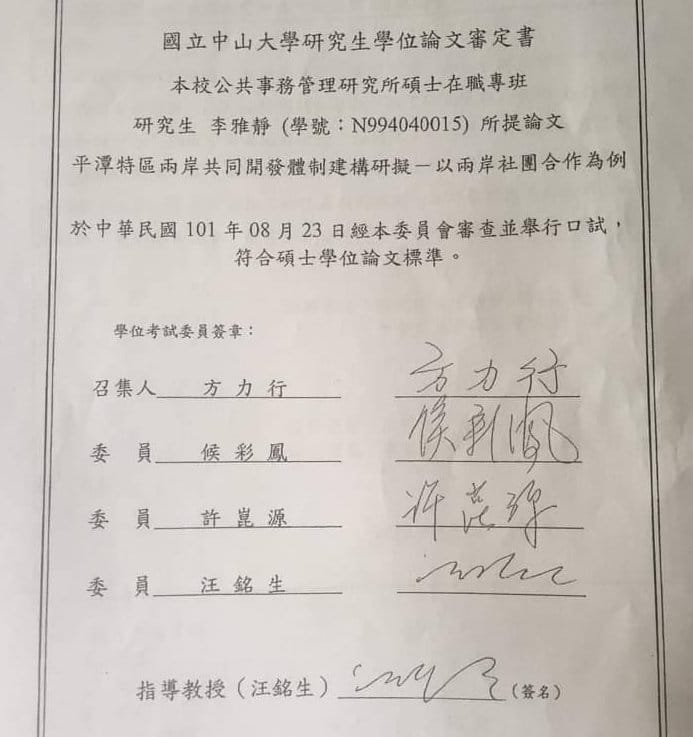 國立中山大學研究生學位論文審定書
本校公共事務管理研究所碩士在職專班
研究生 李雅靜 (學號：N994040015) 所提論文
平潭特區兩岸共同開發體制建構研擬－以兩岸社團合作為例
於中華民國 101 年 08 月 23 日經本委員會審查並舉行口試，
符合碩士學位論文標準。
學位考試委員簽章：
召集人 方力行 方力行
委 員 候彩鳳 侯彩鳳
委 員 許崑源 許崑源
委 員 汪銘生
指導教授（汪銘生） （簽名）